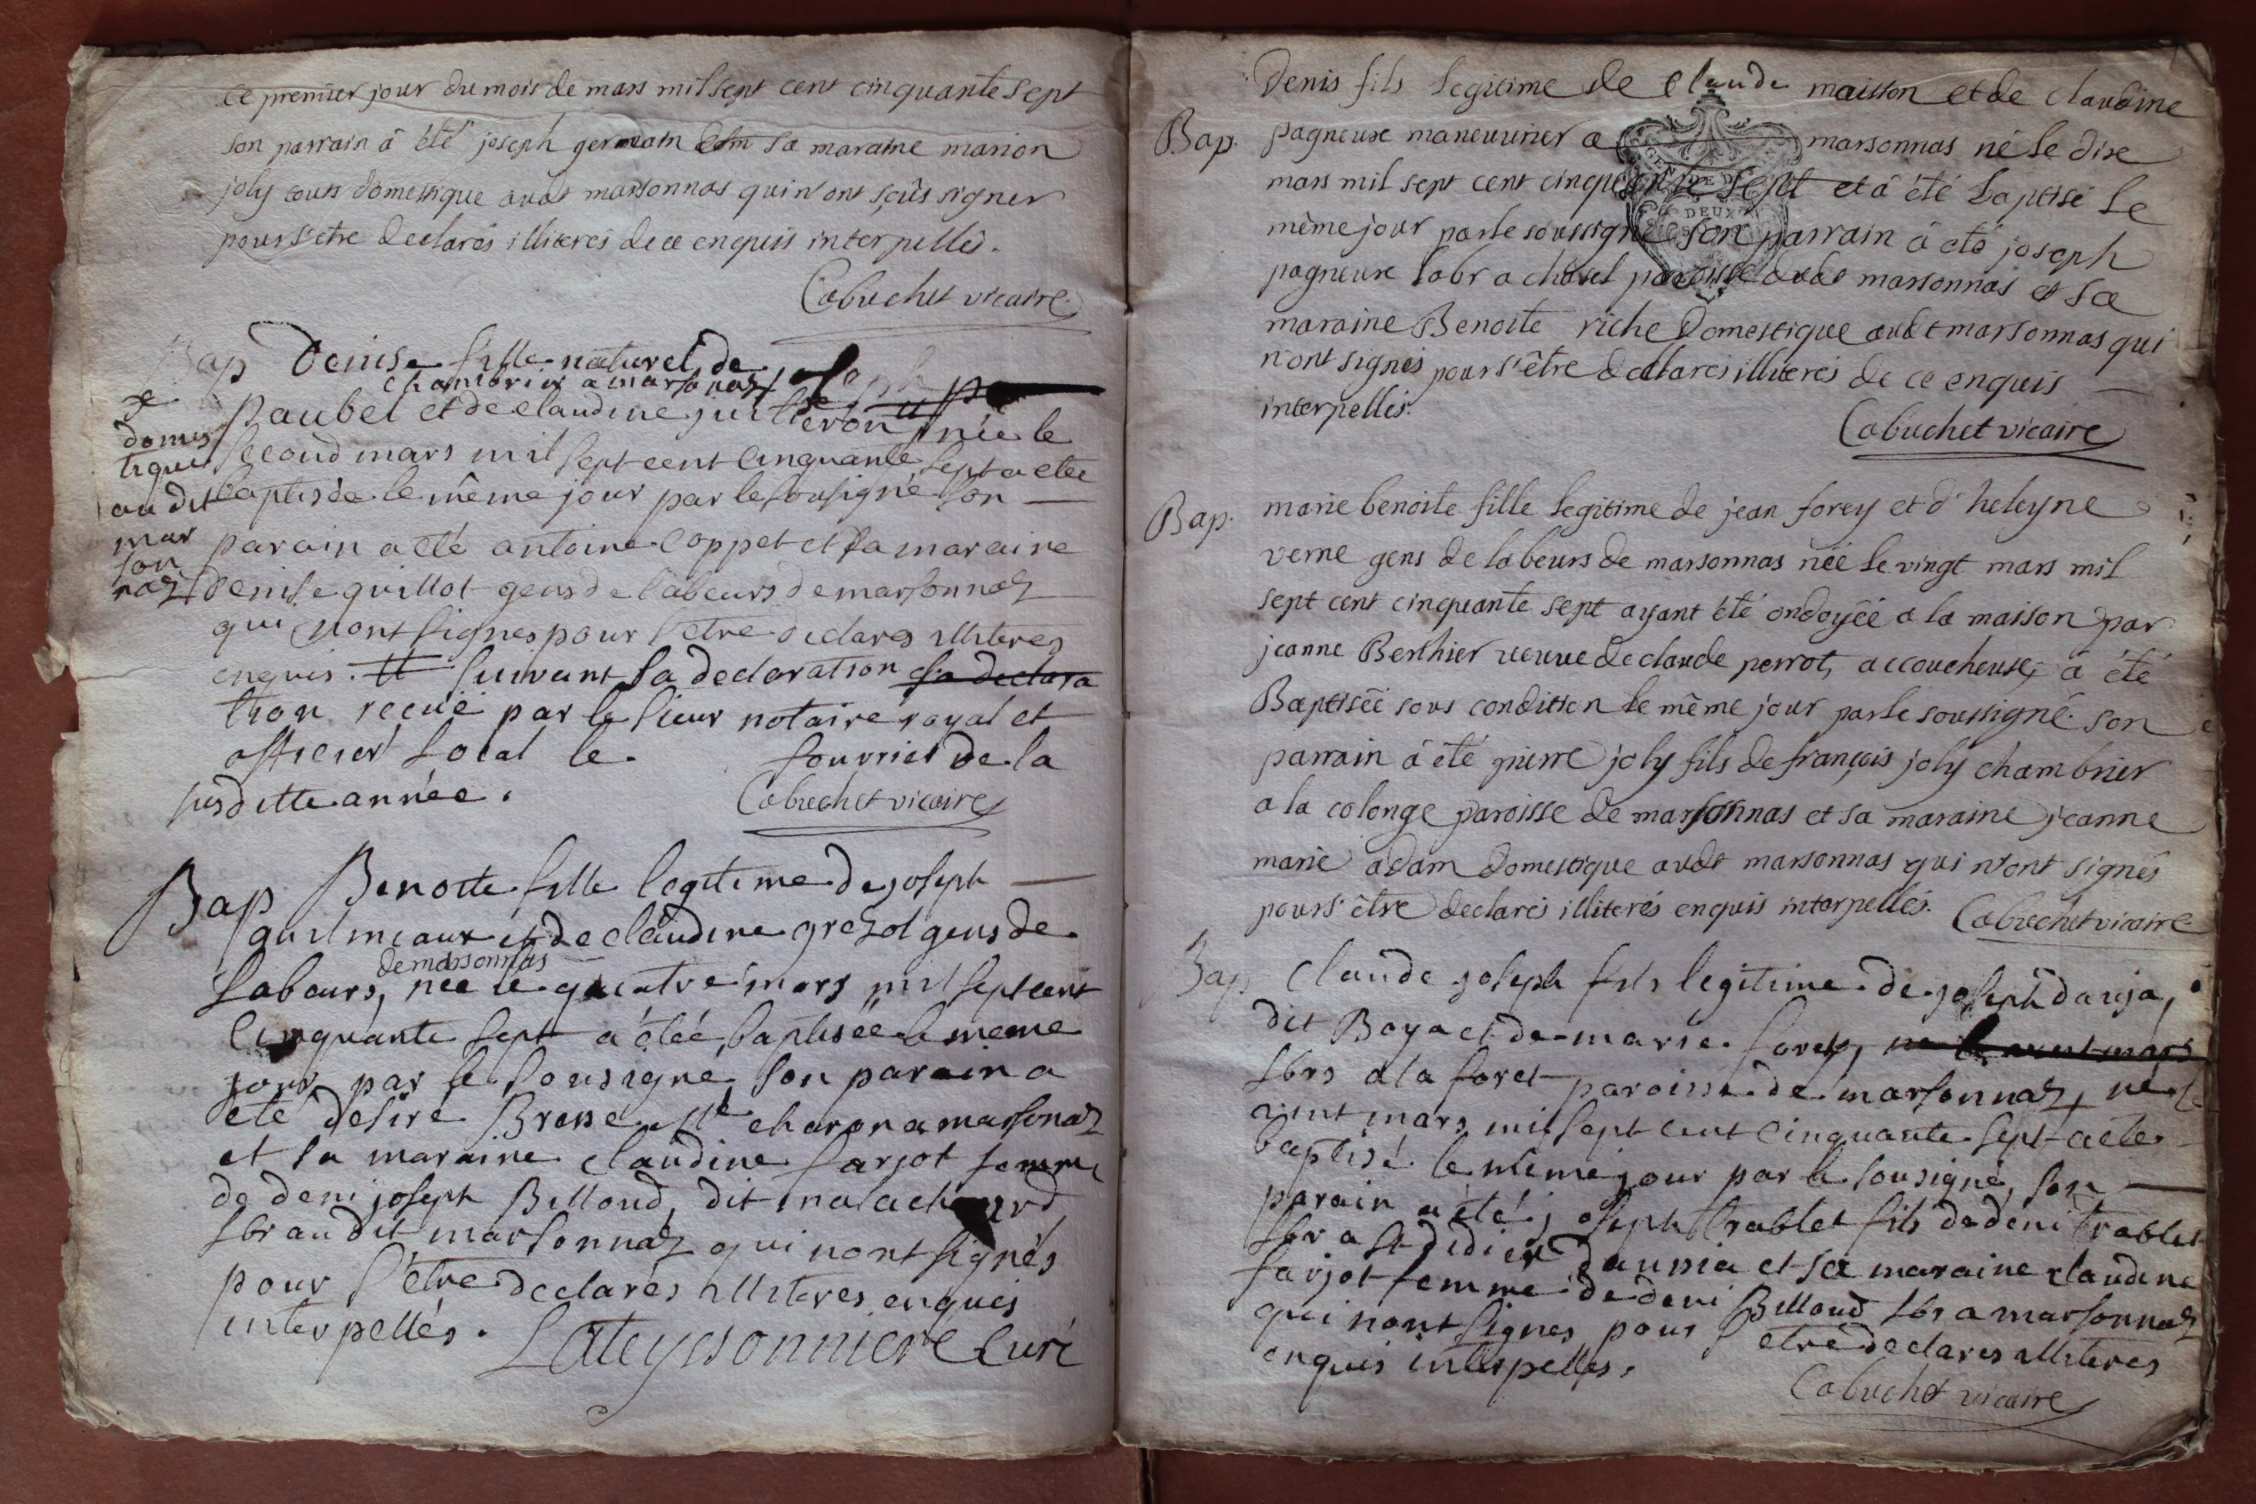 ce premier jour du mois de mars mil sept cent cinquante sept
son parrain â été joseph germain et sa maraine marion
joly tous domestique audt marsonnas qui n'ont sçûs signer
pour s'etre declarés illiterés de ce enquis interpellés.
Cabuchet vicaire
Bap Denise fille naturel de
chambrier a marsonas
paubel et de claudine guilleron née le
second mars mil sept cent cinquante sept a etée
baptisée le même jour par le sousigné son
parain a été antoine coppet et sa maraine
denise guillot gens de labeurs de marsonnaz
qui n'ont signes pour s'etre declares illiteres
enquis. suivant sa declaration sa declara
tion reçuë par le sieur notaire royal et
officier local le fourrier de la
susditte année.
Cabuchet vicaire
domes
tiques
au dit
mar
son
naz
Bap Benoite fille legitime de joseph
guilmeaux et de claudine grezol gens de
demarsonnas
Labours, née le quatre mars mil sept cent
cinquante sept a étée baptisée le meme
jour par le sousigne, son parain a
été désiré Brosse mtre charon a marsonaz
et sa maraine claudine farjot femme
de deni joseph Billoud, dit malachard
lbr au dit marsonnaz qui nont signés
pour s'être declarés illiteres enquis
interpellés.
Lateyssonniere Curé
Denis fils legitime de claude maisson et de claudine
Bap. pagneux maneuvrier a marsonnas né le dix
mars mil sept cent cinquante sept et â été baptisé le
même jour par le soussigné son parrain â eté joseph
pagneux labr a chavel paroisse dudt marsonnas et sa
maraine Benoite riche domestique audt marsonnas qui
n'ont signés pour s'être declarés illiterés de ce enquis
interpellés.
Cabuchet vicaire
Bap. marie benoite fille legitime de jean forey et d'heleyne
verne gens de labeurs de marsonnas née le vingt mars mil
sept cent cinquante sept ayant été ondoyée a la maison par
jeanne Berthier veuve de claude perrot, accoucheuse, â été
Baptisée sous condition le même jour par le soussigné. son
parrain â été pierre joly fils de françois joly chambrier
a la colonge paroisse de marsonnas et sa maraine jeanne
marie adam domestique audt marsonnas qui n'ont signés
pour s'être declarés illiterés enquis interpellés.
Cabuchet vicaire
Bap Claude joseph fils legitime de joseph dauja,
dit Boya et de marie forey, ne le vint mars
lbrs a la foret paroisse de marsonnaz, né le
vint mars mil sept cent cinquante sept a ete
baptisé le même jour par le sousigné, son
parain a été joseph trablet fils de deni trablet
lbr a St didier daussia et sa maraine claudine
farjot femme de deni Billoud lbr a marsonnaz
qui nont signes pour s'etre declares illiteres
enquis interpellés.
Cabuchet vicaire
DEUX